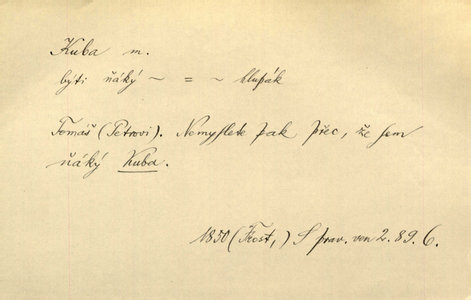 Kuba m.
býti ňáký ~ = ~ hlupák
Tomáš (Petrovi). Nemyslete pak přec, že sem
ňáký Kuba.
1850 (Kost,) S prav. ven 2. 89. 6.